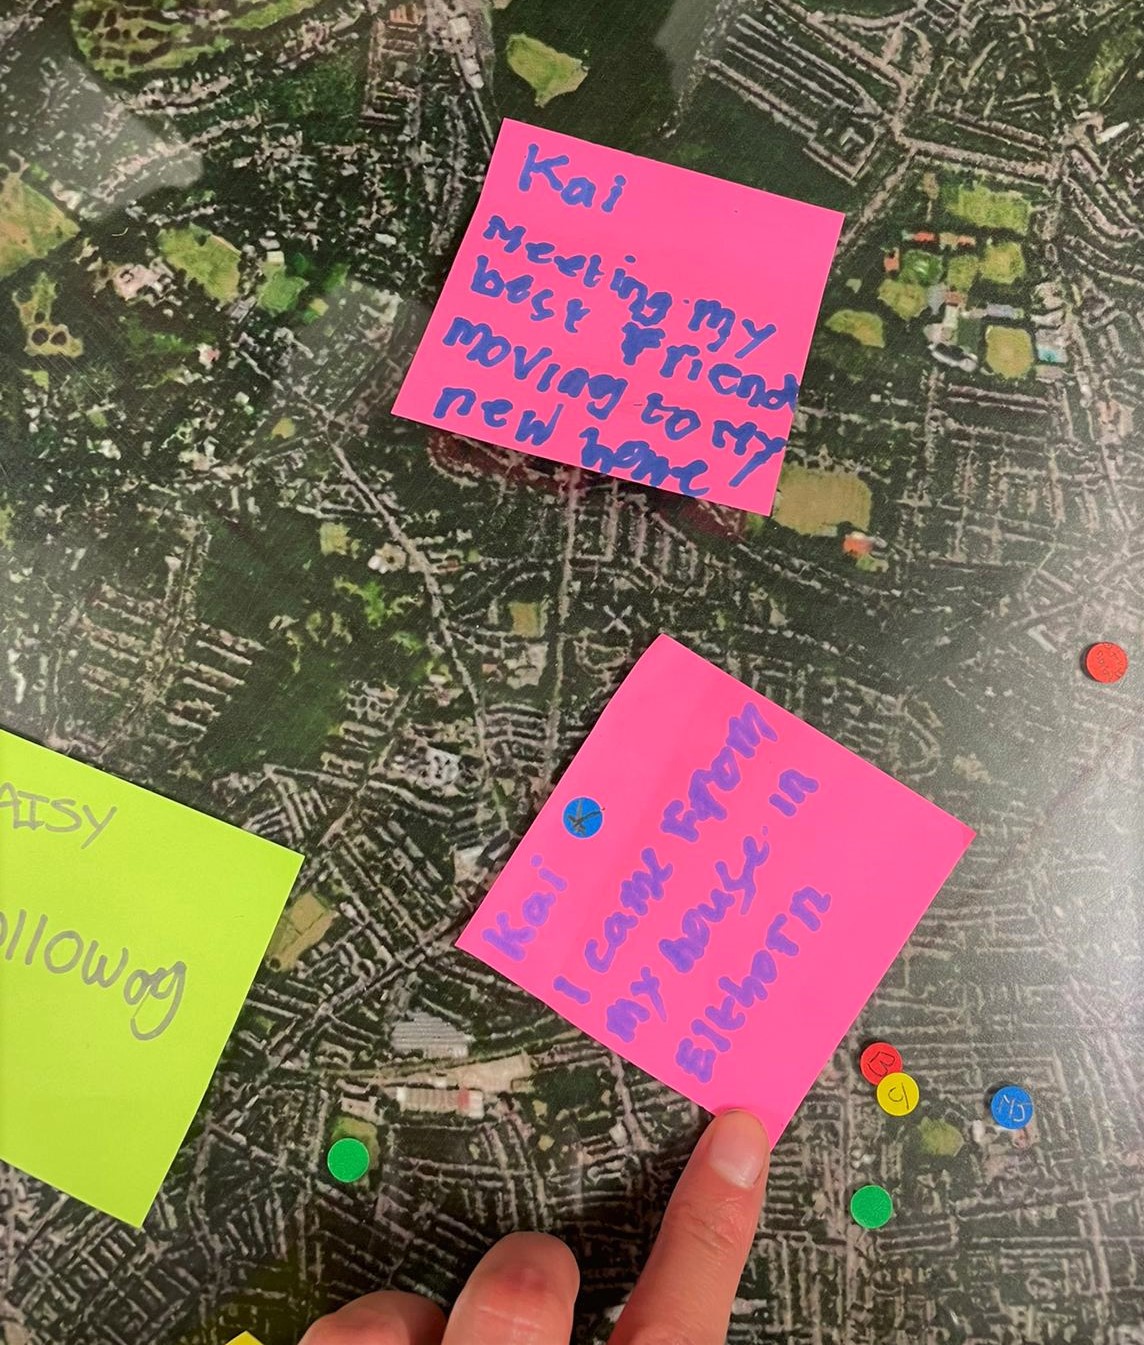 Kai
Meeting my
best Friend
moving to my
new home
Kai
I came From
my house in
Elthorn
AISY
ollowag
K
B
MJ